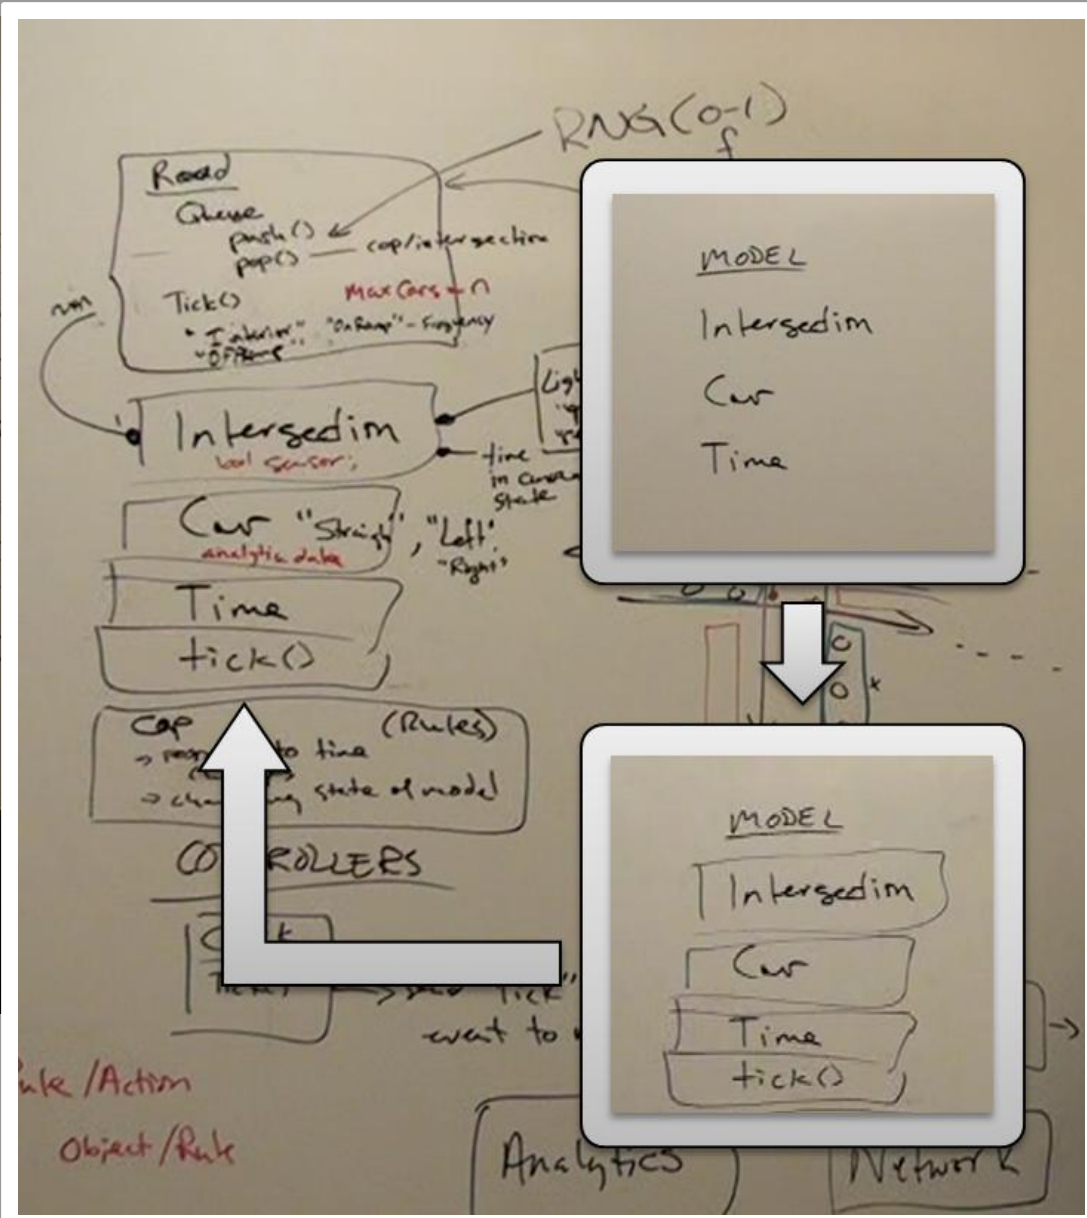 RNG(0-1)
f
Road
Queue
push()
pop() — cap/intersection
Max Cars = n
Tick()
"Interior", "OnRamp" - Frequency
"OffRamp"
Intersection
bool sensor;
Ligh
time
in curren
State
Car "Straigh", "Left",
"Right"
analytic data
Time
tick()
Cap (Rules)
to time
state of model
CO ROLLERS
Tick"
event to
Rule/Action
Object/Rule
Analytics
Network
MODEL
Intersection
Car
Time
MODEL
Intersection
Car
Time
tick()